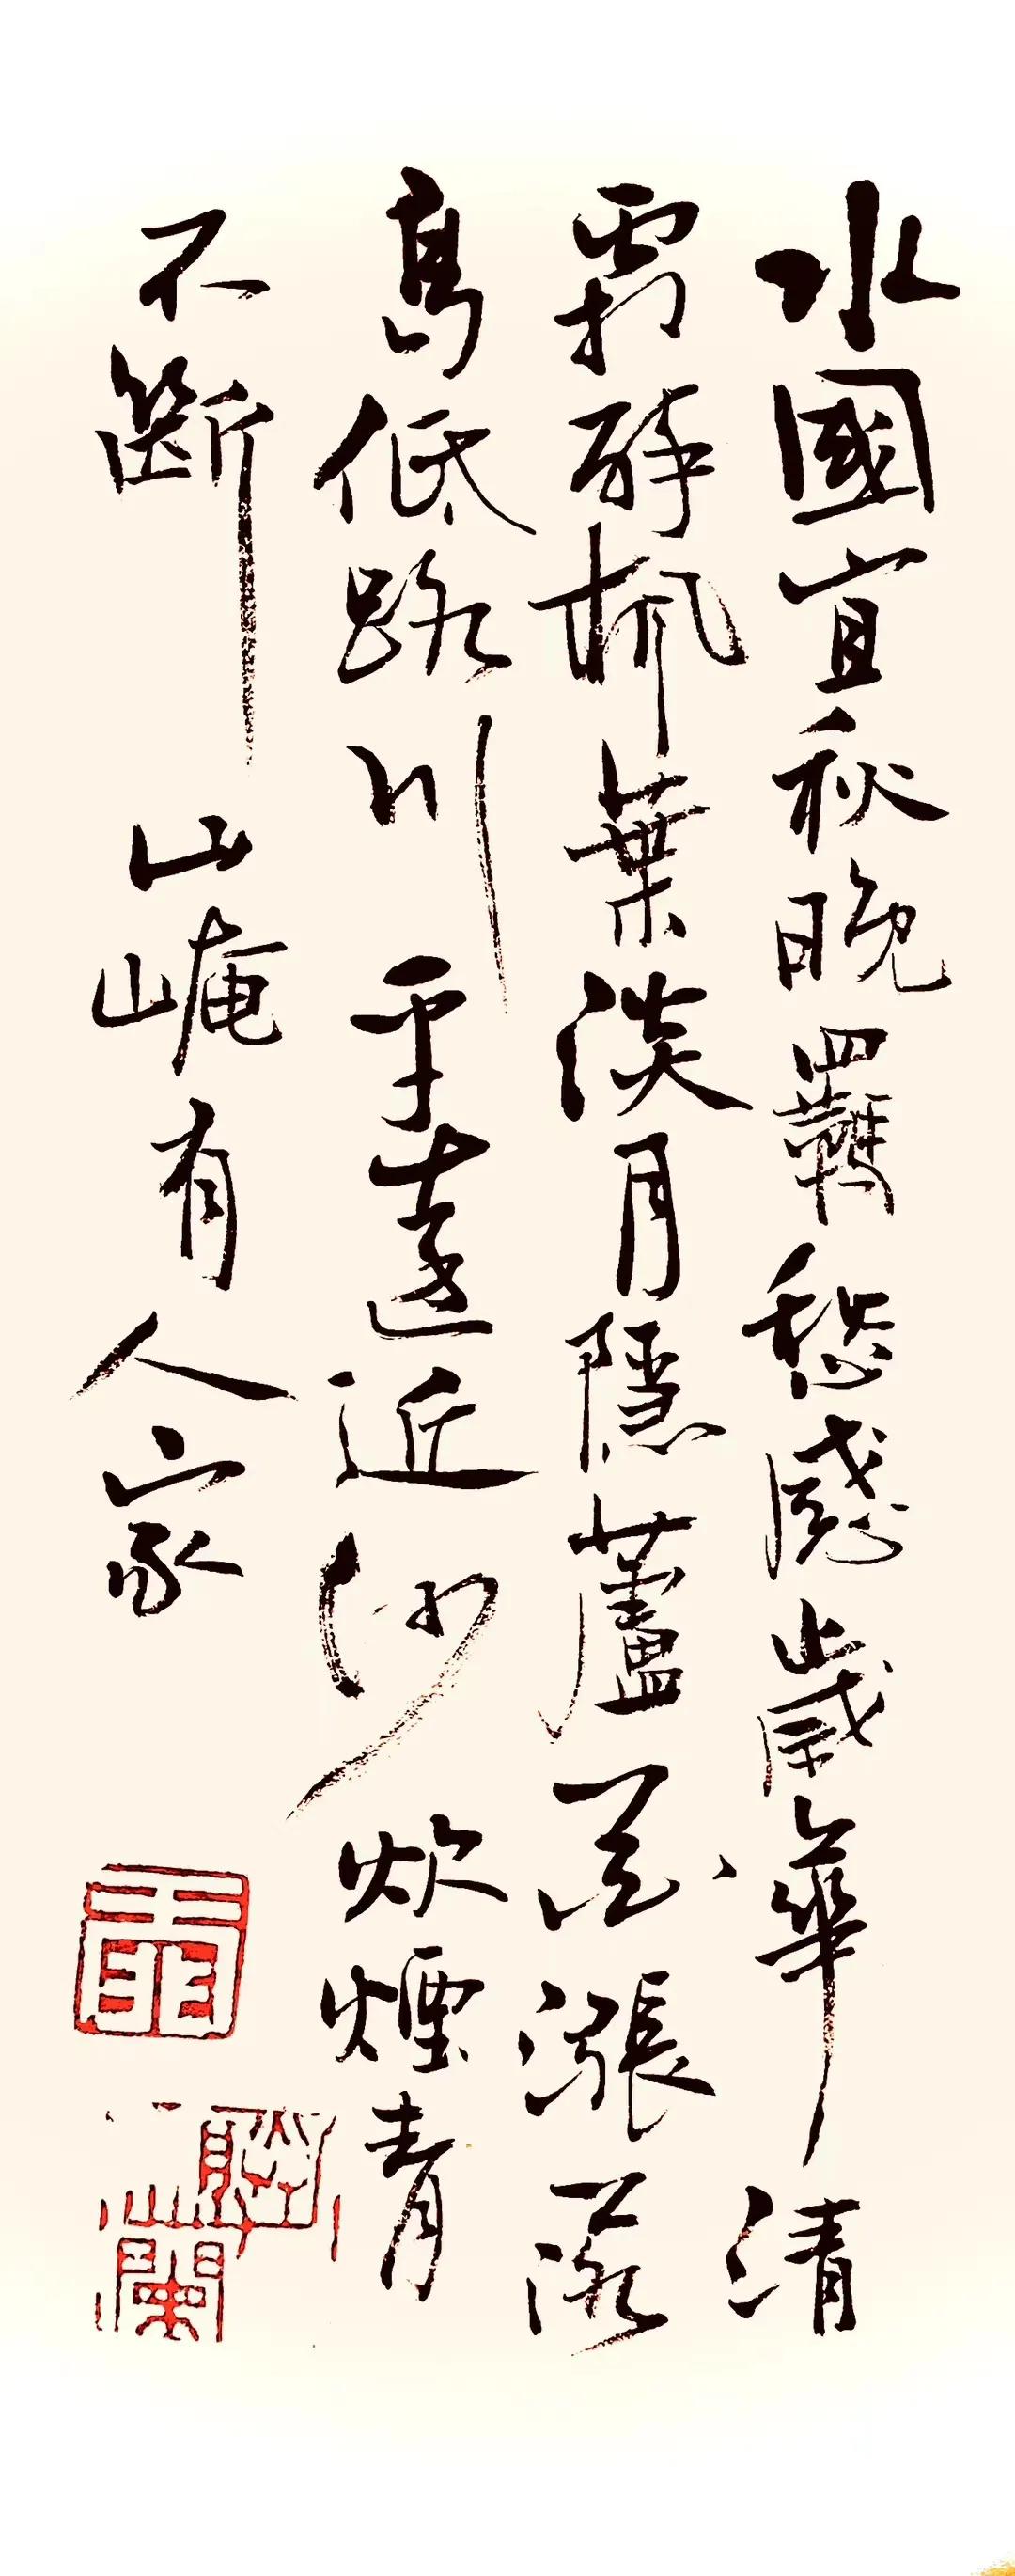 水國宜秋晚羈愁感歲華清
霜醉楓葉淡月隱蘆花漲落
高低路川平遠近沙炊煙青
不斷山崦有人家